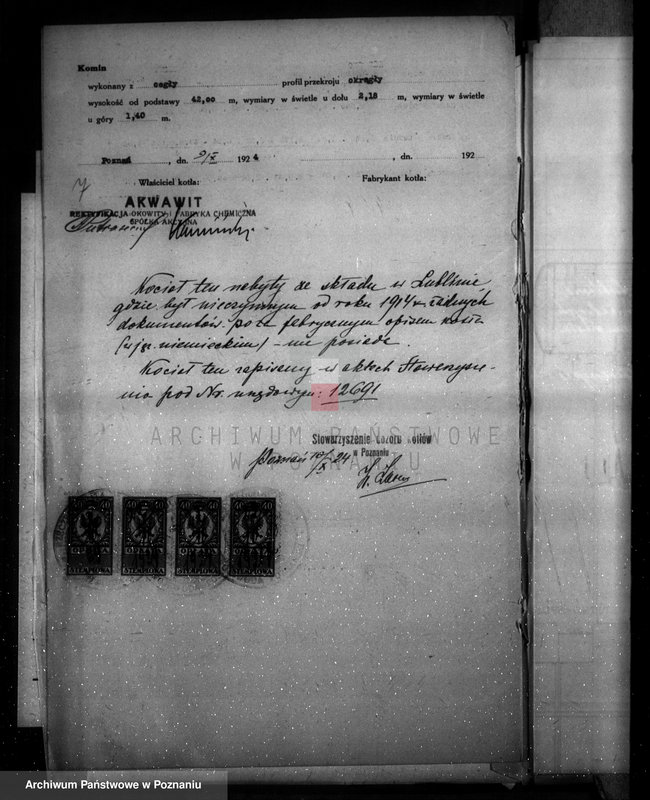 Komin
wykonany z cegły profil przekroju okrągły
wysokość od podstawy 42,00 m, wymiary w świetle u dołu 2,18 m, wymiary w świetle
u góry 1,40 m.
Poznań, dn. 9/X 1924 , dn. 192
Właściciel kotła: Fabrykant kotła:
7
AKWAWIT
REKTYFIKACJA OKOWITY I FABRYKA CHEMICZNA
SPÓŁKA AKCYJNA
Kocioł ten nabyty ze składu w Lublinie,
gdzie był nieczynnym od roku 1914 r. żadnych
dokumentów poza fabrycznym opisem kotła
(w jęz. niemieckim) - nie posiada.
Kocioł ten zapisany w aktach Stowarzysze-
nia pod Nr. urzędowym: 12691
ARCHIWUM PAŃSTWOWE
W POZNANIU
Stowarzyszenie dozoru kotłów
w Poznaniu
Poznań 10/X 24
40 40 40 40
OPŁATA OPŁATA OPŁATA OPŁATA
STEMPLOWA STEMPLOWA STEMPLOWA STEMPLOWA
Archiwum Państwowe w Poznaniu